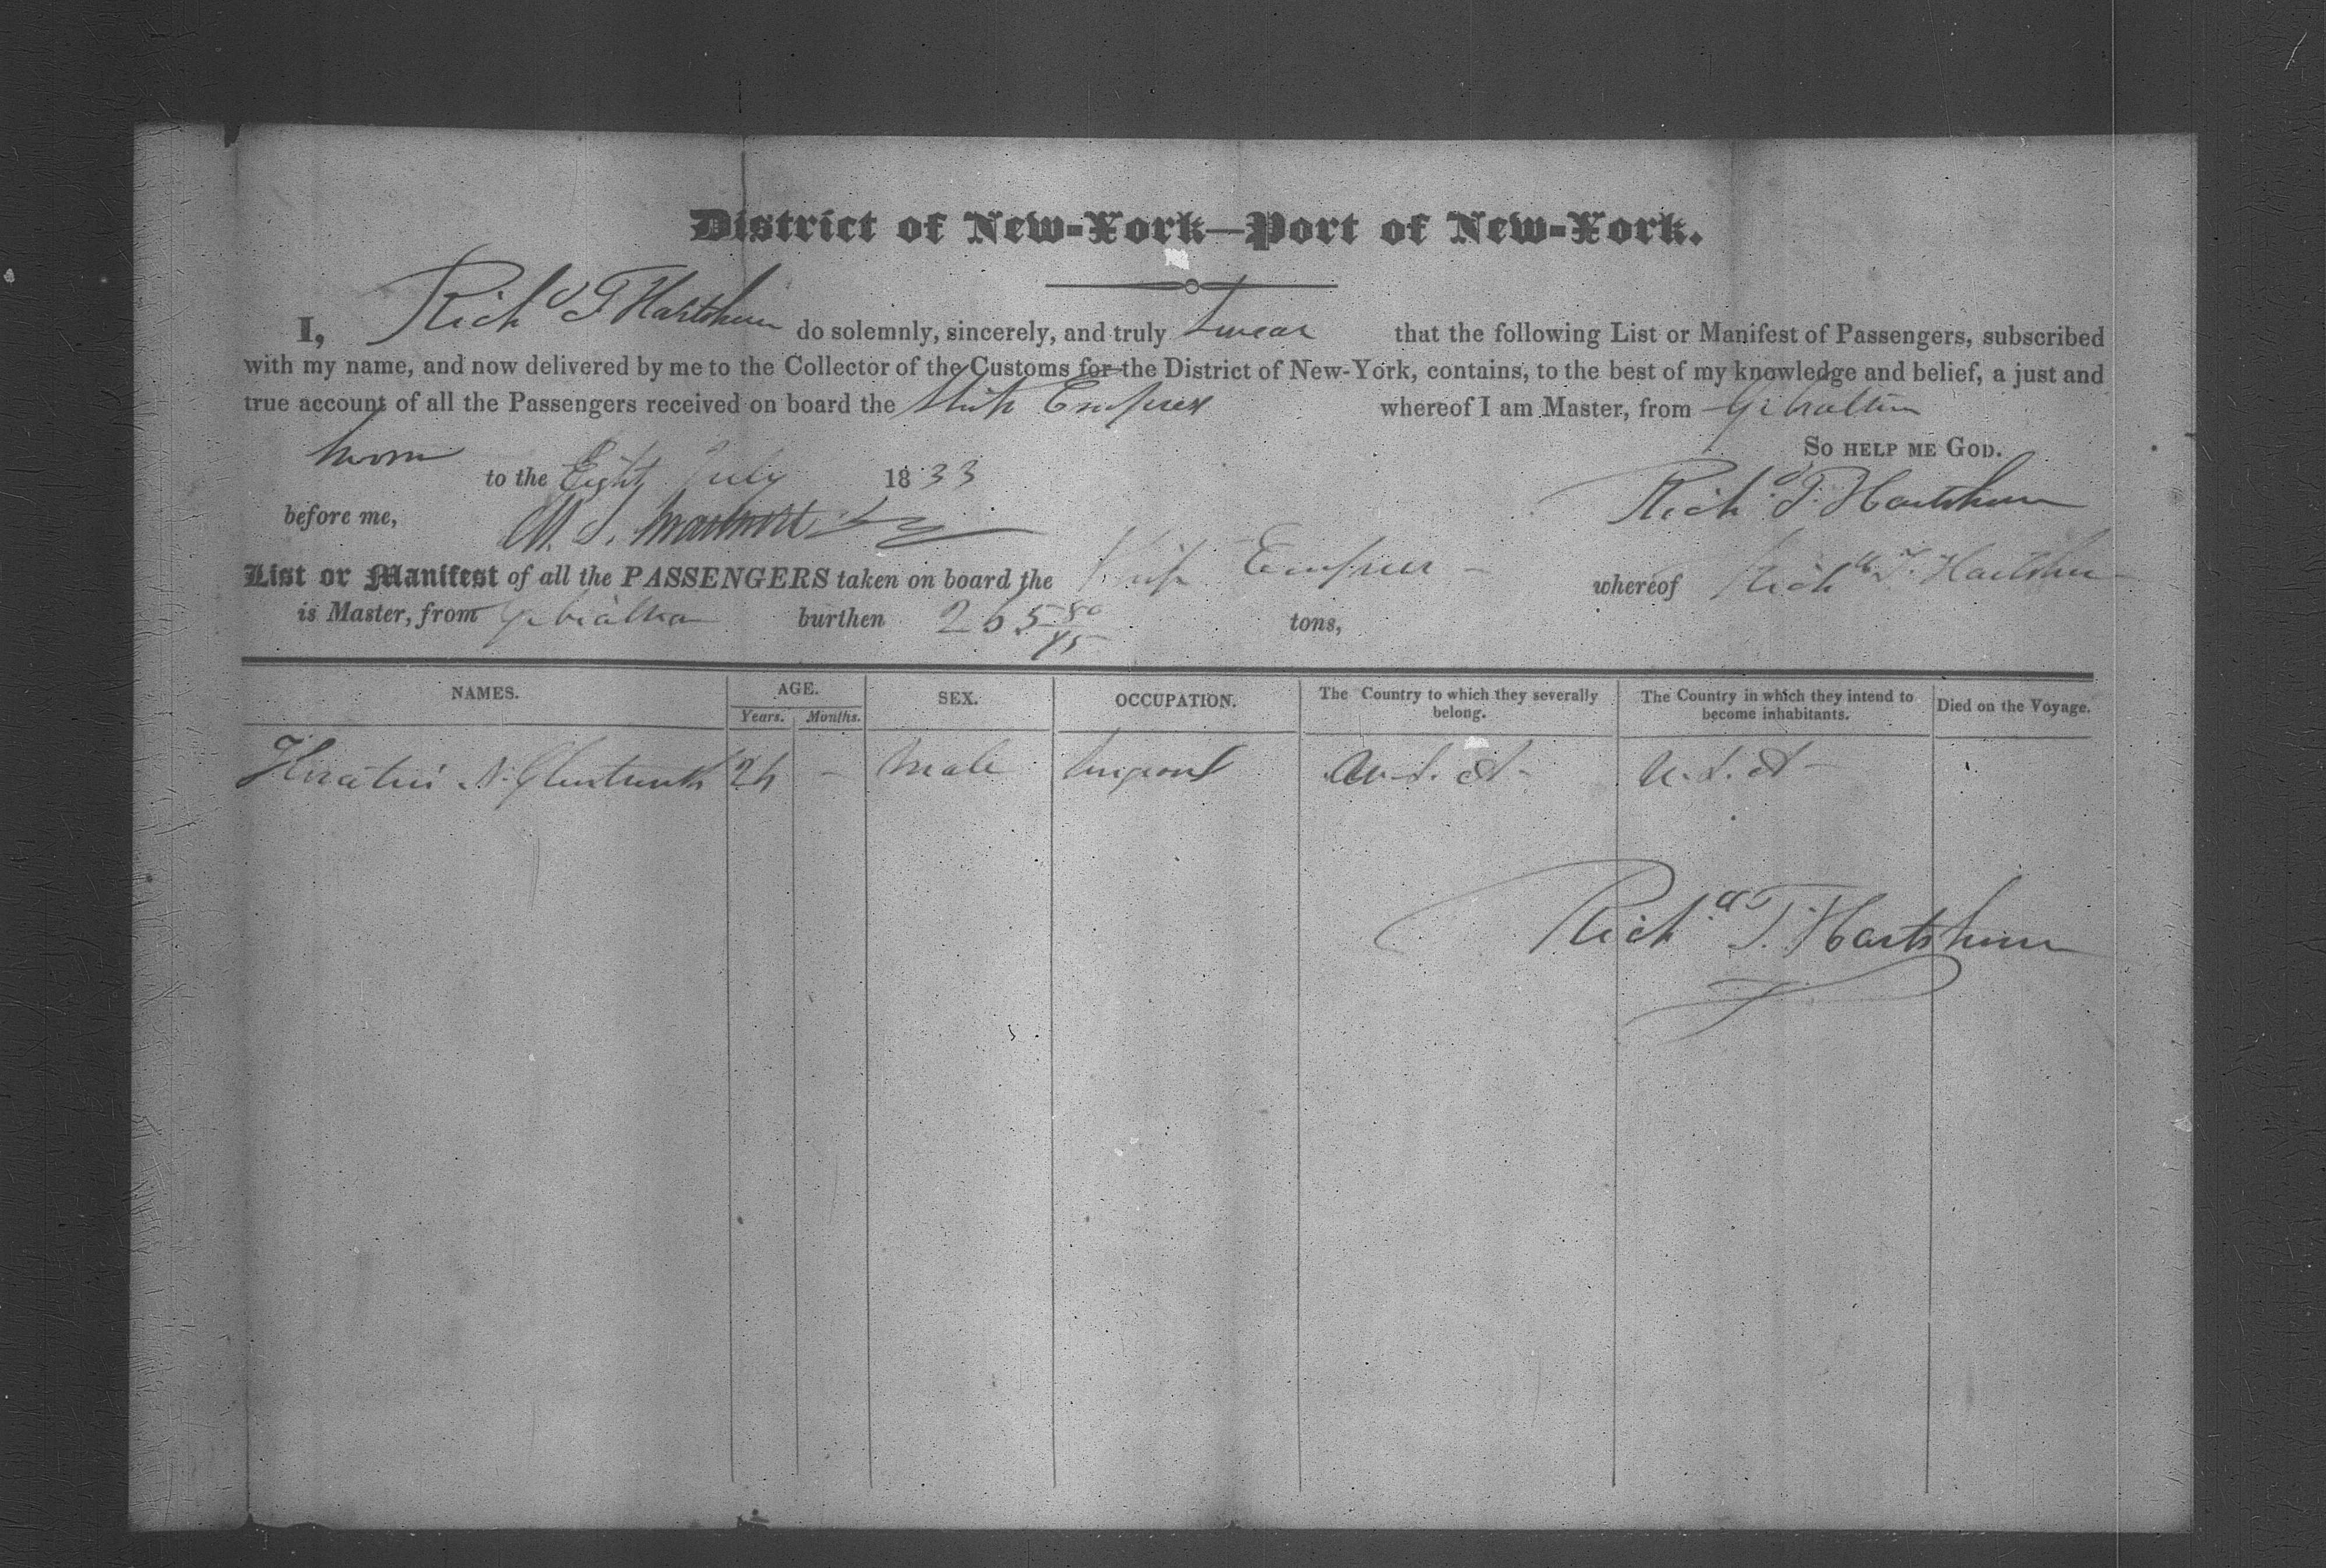 District of New-York—Port of New-York.
I, Richd T Hartshorn do solemnly, sincerely, and truly swear that the following List or Manifest of Passengers, subscribed
with my name, and now delivered by me to the Collector of the Customs for the District of New-York, contains, to the best of my knowledge and belief, a just and
true account of all the Passengers received on board the Ship Empress whereof I am Master, from Gibralter
So HELP ME GOD.
Sworn to the Eight July 1833 Richd T. Hartshorn
before me,
List or Manifest of all the PASSENGERS taken on board the Ship Empress – whereof Richd T. Hartshorn
is Master, from Gibralter burthen 265 tons,
NAMES. AGE. SEX. OCCUPATION. The Country to which they severally belong. The Country in which they intend to become inhabitants. Died on the Voyage.
Years. Months.
Horatio N. 24 – Male Surgeon U.S.A – U.S.A –
Richd T. Hartshorn